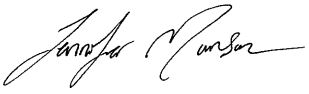 Jennifer Munson